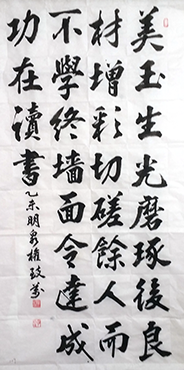 美玉生光磨琢後良
材增彩切磋餘人而
不學終墙面令達成
功在讀書
乙未明